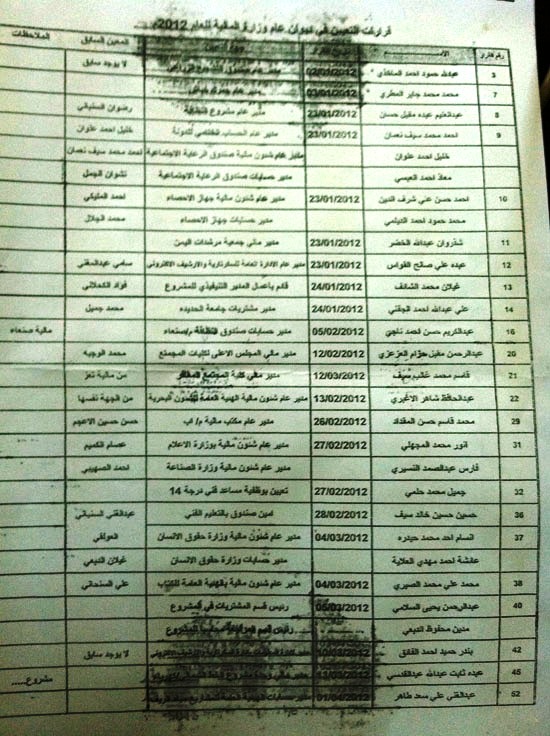 قرارات التعيين في ديوان عام وزارة المالية للعام 2012م
رقم القرار الاســـــم المعين السابق الملاحظات
3 عبدالله حمود احمد 02/01/2012 لا يوجد سابق
7 محمد محمد جابر المطري 03/01/2012 مدير عام
8 عبدالعليم عبده مقبل حسان 23/01/2012 مدير عام مشروع رضوان السنباني
9 احمد محمد سيف نعمان 23/01/2012 مدير عام الحساب الختامي للدولة خليل احمد علوان
خليل احمد علوان مدير عام شئون مالية صندوق الرعاية الاجتماعية احمد محمد سيف نعمان
معاذ احمد العبسي مدير حسابات صندوق الرعاية الاجتماعية نشوان الجمل
10 احمد حسن علي شرف الدين 23/01/2012 مدير عام شئون مالية جهاز الاحصاء احمد المليكي
محمد حمود احمد مدير حسابات جهاز الاحصاء محمد الجلال
11 شذروان عبدالله الخضر 23/01/2012 مدير مالي جمعية مرشدات اليمن
12 عبده علي صالح القواس 23/01/2012 مدير عام الادارة العامة للسكرتارية والارشيف الالكتروني سامي عبدالمغني
13 غيلان محمد الشائف 24/01/2012 قائم بأعمال المدير التنفيذي للمشروع فؤاد الكحلاني
14 علي عبدالله احمد 24/01/2012 مدير مشتريات جامعة الحديده محمد جميل
16 عبدالكريم حسن احمد ناجي 05/02/2012 مدير حسابات صندوق النظافة م/صنعاء مالية صنعاء
20 عبدالرحمن مقبل حزام العزعزي 12/02/2012 مدير مالي المجلس الاعلى لكليات المجتمع محمد الوجيه
21 قاسم محمد غالب سيف 12/03/2012 مدير مالي كلية المجتمع من مالية تعز
22 عبدالحافظ شاهر الاغبري 13/02/2012 مدير عام شئون مالية الهيئة العامة للشئون البحرية من الجهة نفسها
29 محمد قاسم حسن المقداد 26/02/2012 مدير عام مكتب مالية م/ اب حسن حسين الاعجم
31 انور محمد المجهلي 27/02/2012 مدير عام شئون مالية بوزارة الاعلام عصام الكميم
فارس عبدالصمد مدير عام شئون مالية وزارة الصناعة احمد الصهيبي
32 جميل محمد حلمي 27/02/2012 تعيين بوظيفة مساعد فني درجة 14
36 حسين حسين خالد سيف 28/02/2012 امين صندوق بالتعليم الفني عبدالغني السنباني
37 محمد حيدره 04/03/2012 مدير عام شئون مالية وزارة حقوق الانسان العولقي
عائشة احمد مهدي العلاية مدير حسابات وزارة حقوق الانسان غيلان الدبعي
38 محمد علي محمد الصبري 04/03/2012 مدير عام شئون مالية بالهيئة العامة للكتاب علي السنحاني
40 عبدالرحمن يحيى السلامي 05/03/2012 رئيس قسم المشتريات في المشروع
مدين محفوظ الدبعي رئيس قسم
42 بندر حميد احمد لا يوجد سابق
45 عبده ثابت عبدالله عبدالقدسي مشروع.....
52 عبدالغني علي سعد طاهر 01/04/2012 مدير حسابات